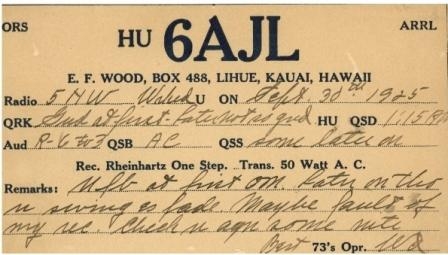 ORS ARRL
HU 6AJL
E. F. WOOD, BOX 488, LIHUE, KAUAI, HAWAII
Radio 5NW Wrked U ON Sept. 30th 1925
QRK Gud at first. Later not as gud HU QSD 1:15 AM
Aud R-6 to 3 QSB AC QSS some later on
Rec. Rheinhartz One Step. Trans. 50 Watt A. C.
Remarks: Ufb at first om. Later on tho
u swing es fade. Maybe fault of
my rec Check u agn some nite
Best 73's Opr. Wd